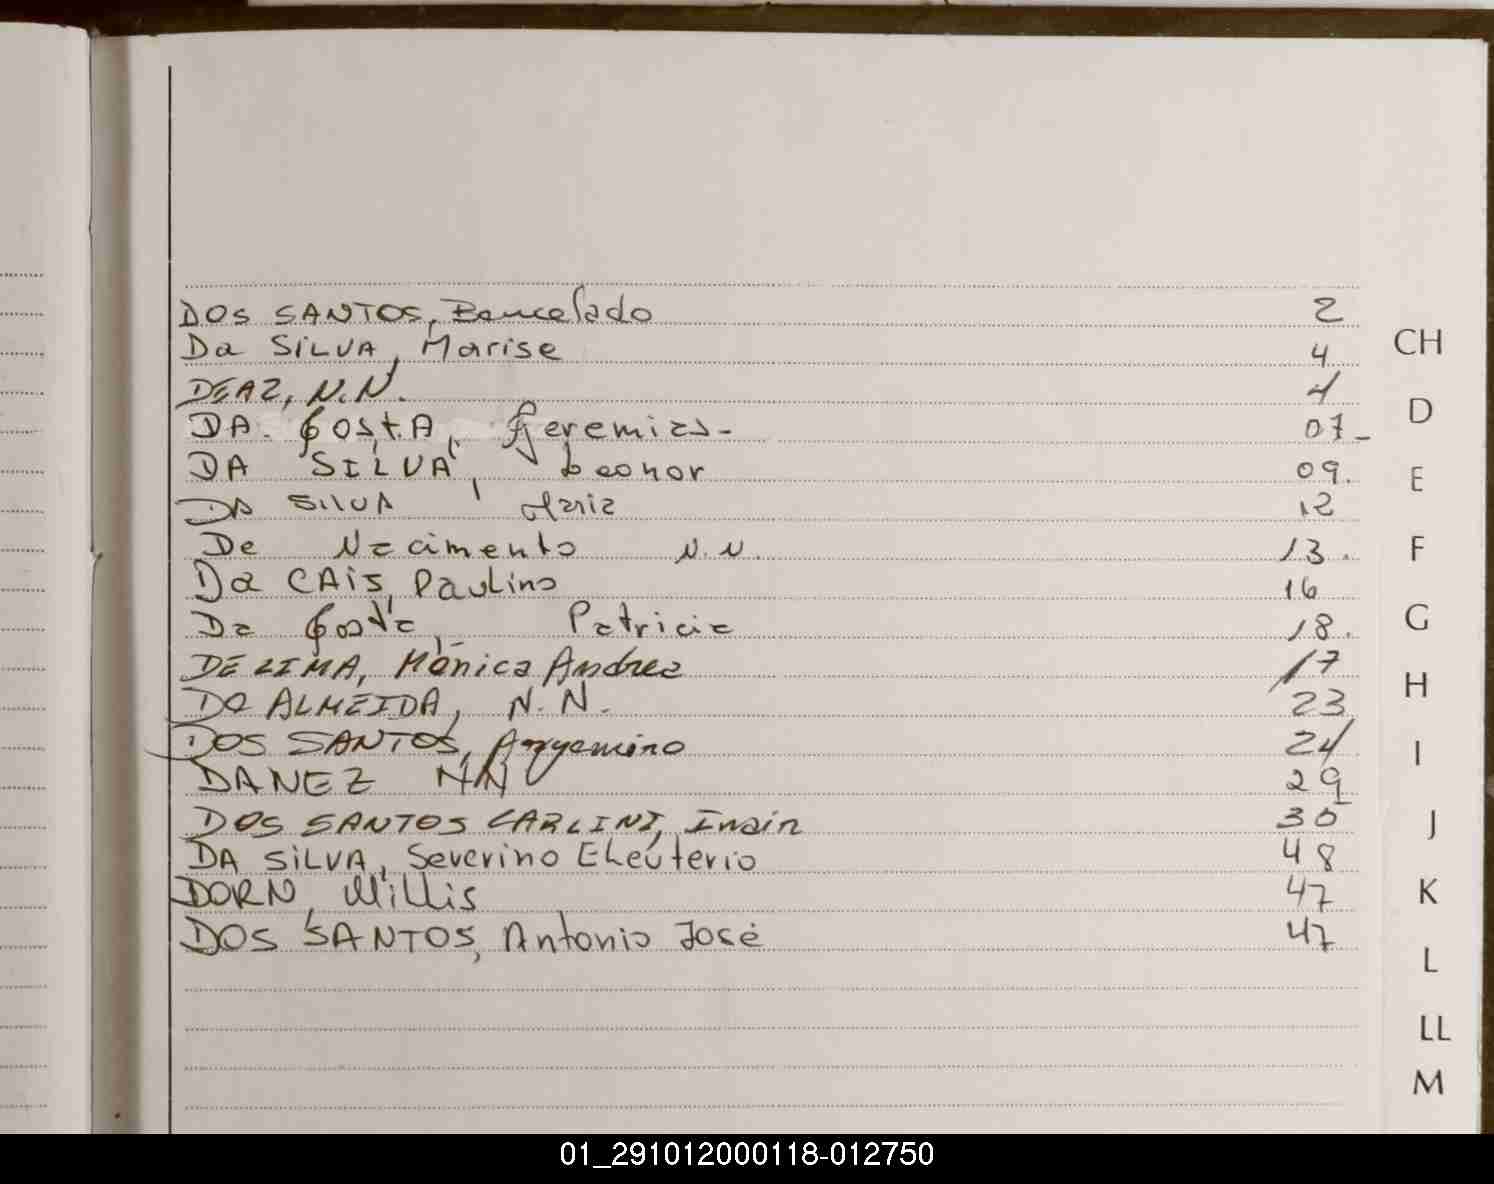 DOS SANTOS, Bancelado 2
Da SILVA, Marise 4
DEAZ, N.N. 4
DA. Costa, Geremias- 07-
DA SILVA, Leonor 09.
DA SILVA, Maria 12
De Nacimento N.N. 13.
Da CAIS, Paulino 16
Da Costa, Patricia 18.
DE LIMA, Mónica Andrea 17
DO ALMEIDA, N.N. 23
DOS SANTOS, 24
DANEZ NN 29
DOS SANTOS CARLINI, 30
DA SILVA, Severino Eleúterio 48
DORN, Willis 47
DOS SANTOS, Antonio José 47
CH
D
E
F
G
H
I
J
K
L
LL
M
01_291012000118-012750